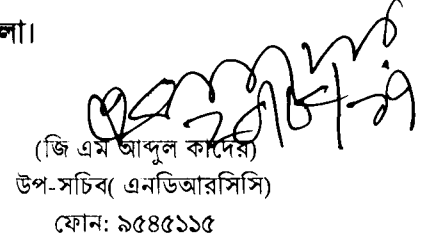 লা।
(জি এম আব্দুল কাদের)
উপ-সচিব( এনডিআরসিসি)
ফোন: ৯৫৪৫১১৫